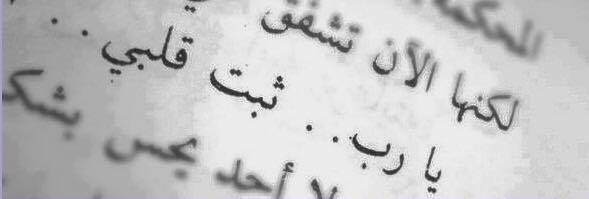 المحكمة
لكنها الآن تشفق
يا رب.. ثبت قلبي..
لا أحد يحس بشك